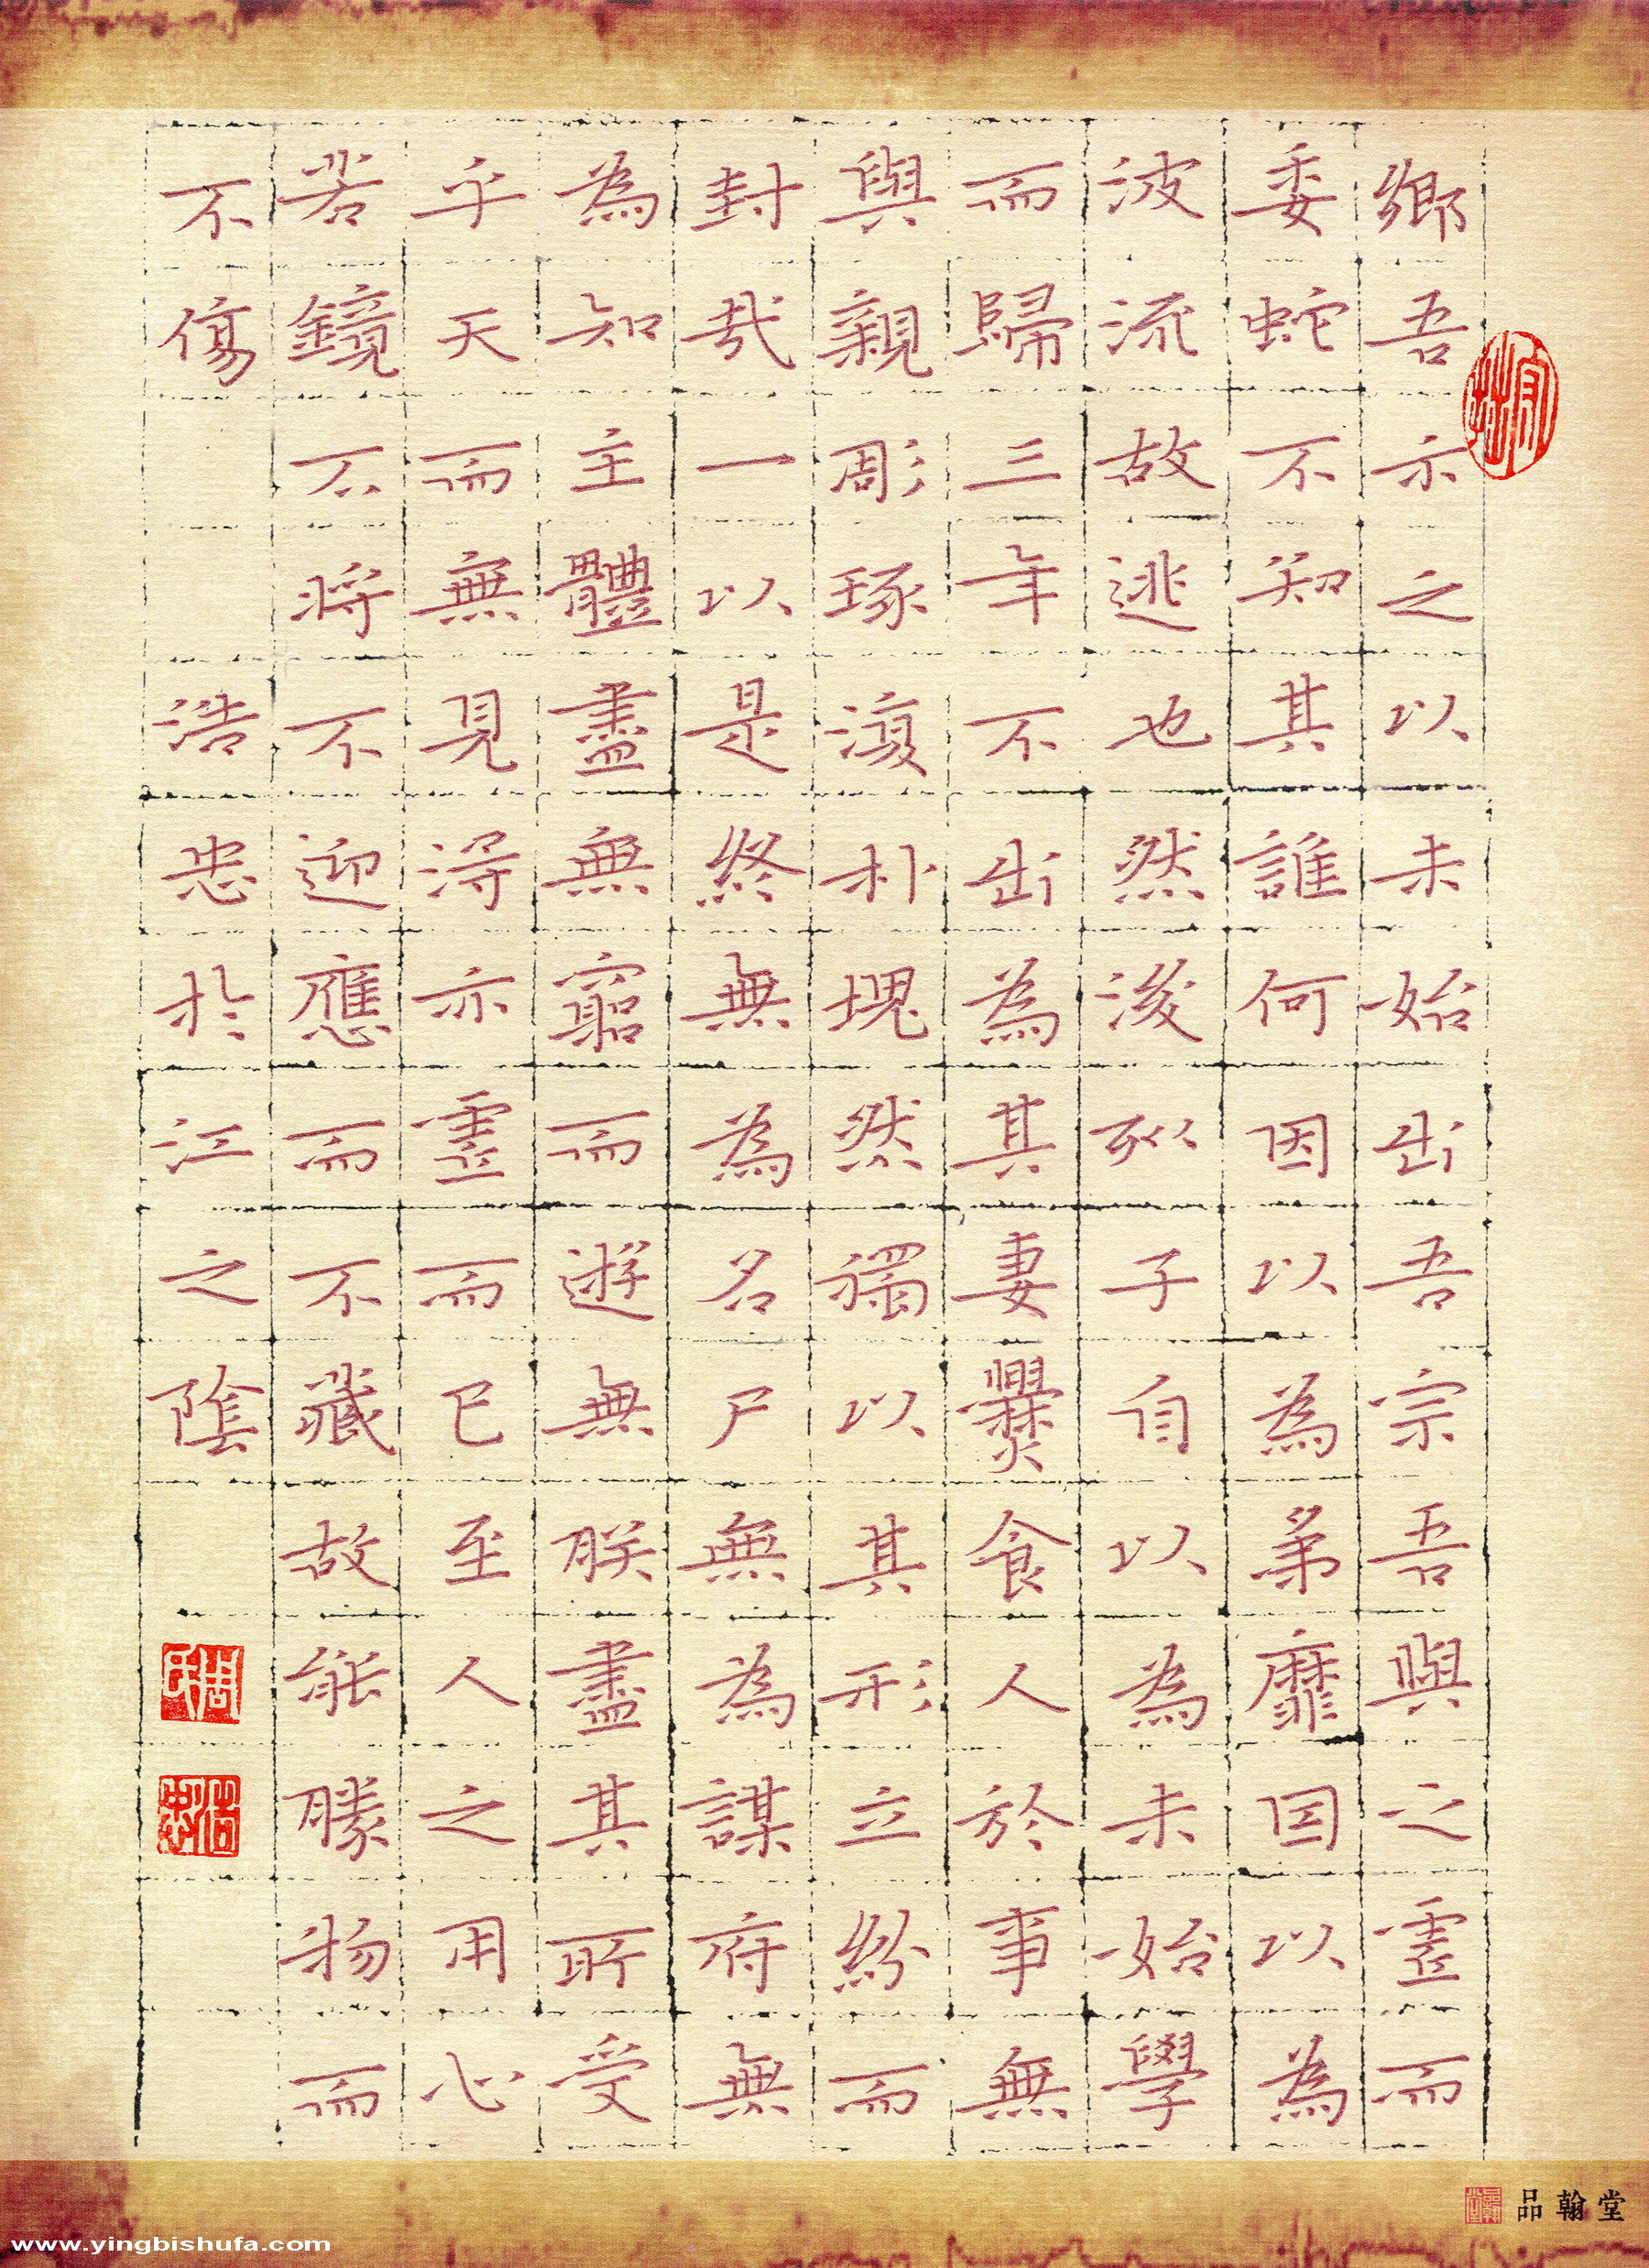 鄉吾示之以未始出吾宗吾與之虛而
委蛇不知其誰何因以為弟靡因以為
波流故逃也然後列子自以為未始學
而歸三年不出為其妻爨食人於事無
與親彫琢復朴塊然獨以其形立紛而
封哉一以是終無為名尸無為謀府無
為知主體盡無窮而遊無朕盡其所受
乎天而無見得亦虛而已至人之用心
若鏡不將不迎應而不藏故能勝物而
不傷 浩忠於江之陰
周氏
浩忠
品翰堂
www.yingbishufa.com